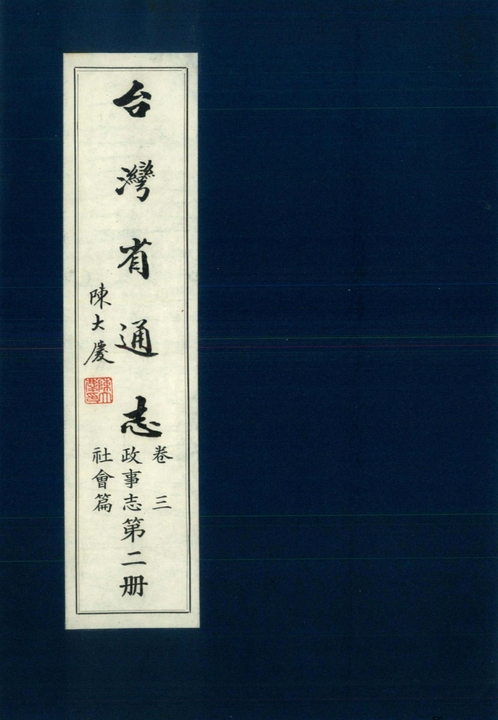 台灣省通志
陳大慶
卷三
政事志
社會篇
第二册